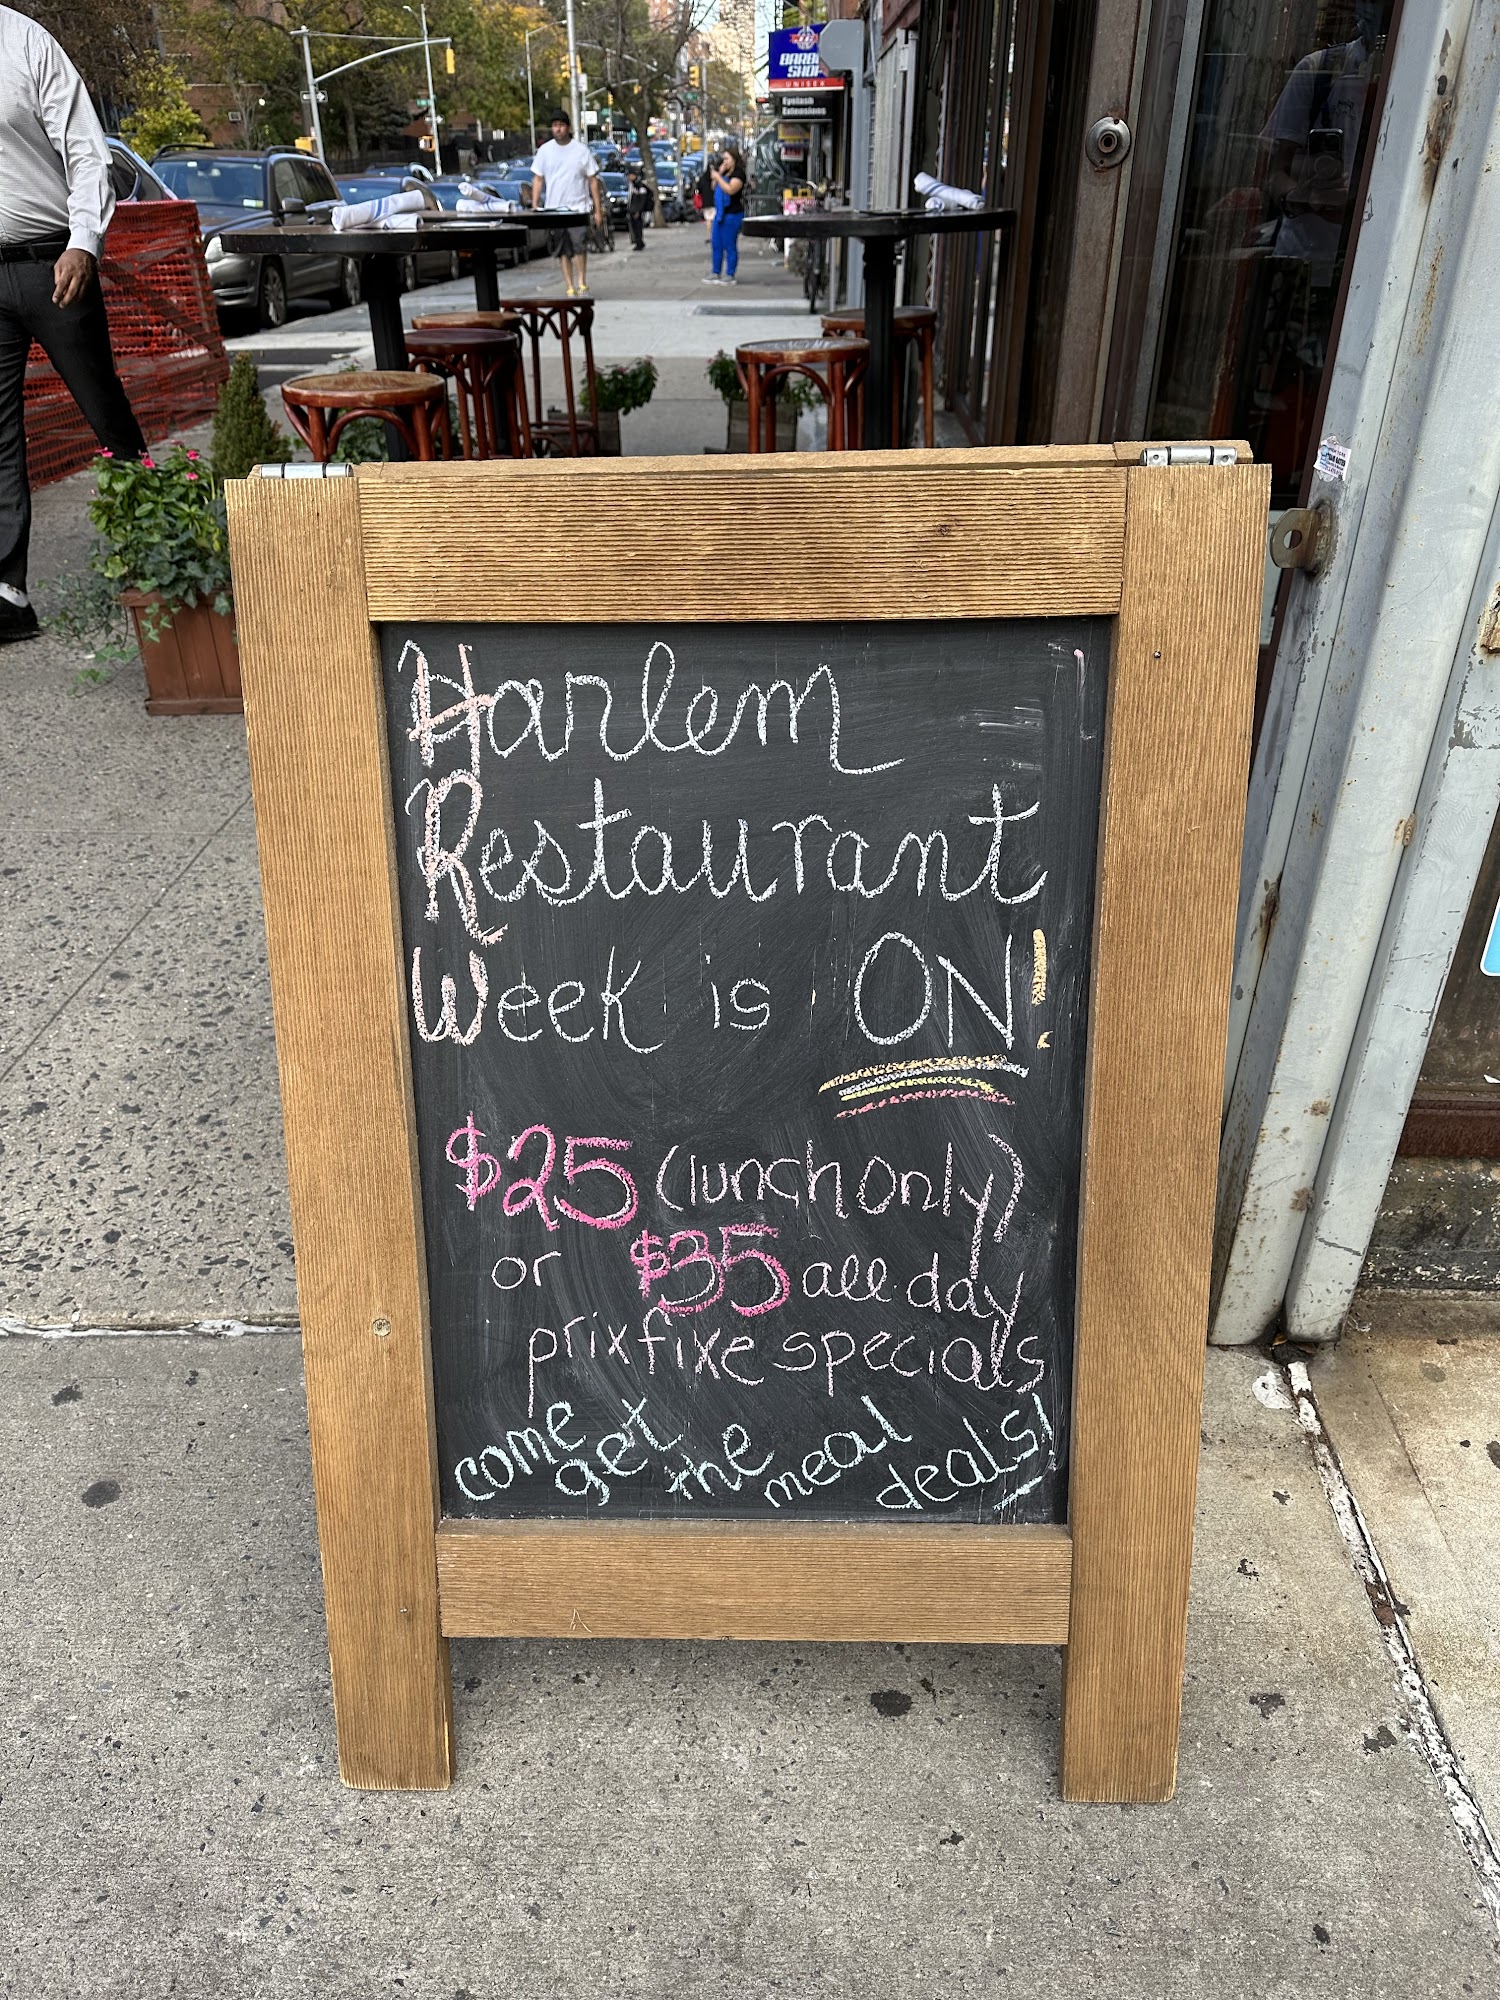 BARBE
SHOP
UNISEX
Eyelash
Extensions
Harlem
Restaurant
Week is ON!
$25 (lunch only)
or $35 all day
prix fixe specials
come get the meal deals!